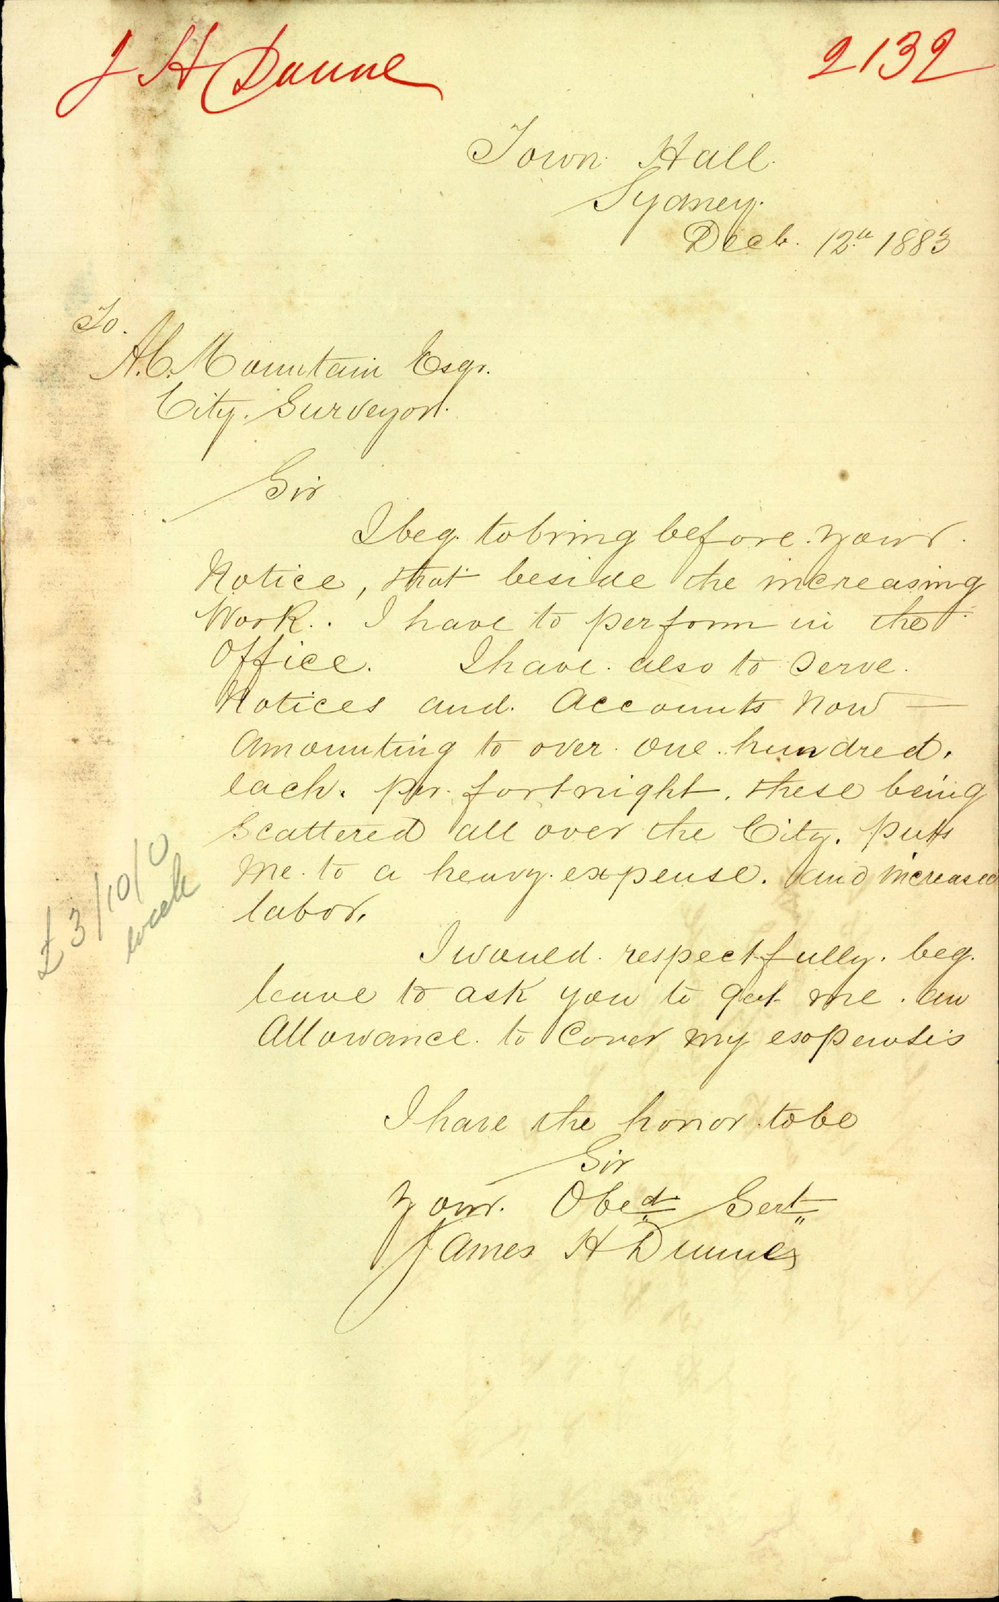 J H Dunne
2132
Town Hall
Sydney.
Decb. 12th 1883
To.
A.C. Mountain Esqr.
City Surveyor.
Sir
I beg to bring before your
Notice, that beside the increasing
Work.. I have to perform in the
Office. I have also to serve
Notices and Accounts Now —
Amounting to over one hundred.
each. per fortnight. these being
Scattered all over the City. puts
Me to a heavy expense. and increased
labor.
£3/10/0
week
I would respectfully. beg.
leave to ask you to get me an
Allowance to Cover my expenses
I have the honor to be
Sir
Your Obedt Servt
James H Dunne